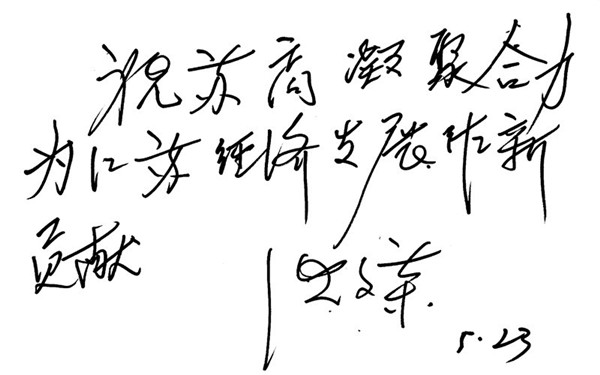 祝苏商凝聚合力
为江苏经济发展作新
贡献
5.23